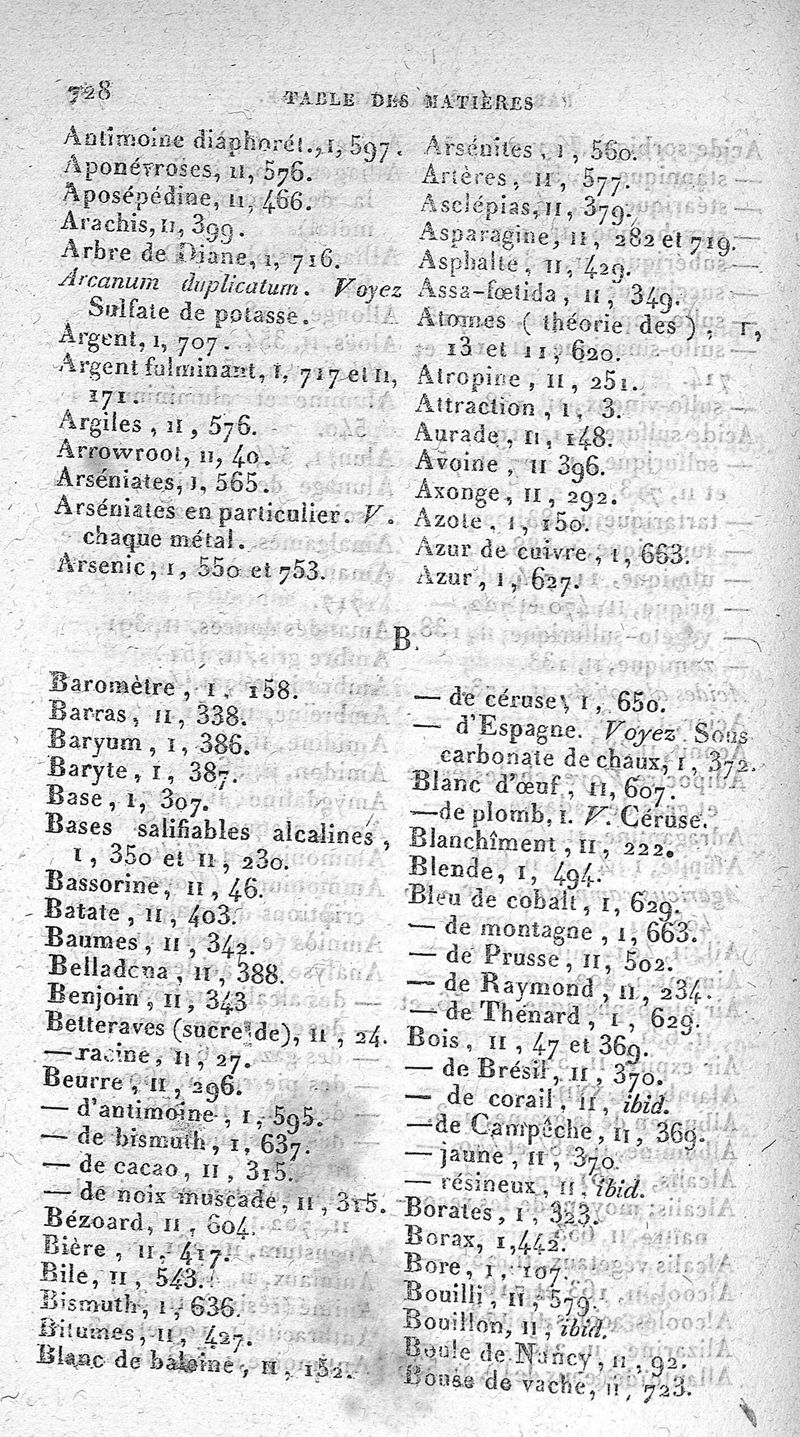 728
TABLE DES MATIÈRES
Antimoine diaphorét., I, 597.
Aponévroses, II, 576.
Aposépédine, II, 466.
Arachis, II, 399.
Arbre de Diane, I, 716.
Arcanum duplicatum. Voyez
Sulfate de potasse.
Argent, I, 707.
Argent fulminant, I, 717 et II,
171.
Argiles, II, 576.
Arrowroot, II, 40.
Arséniates, I, 565.
Arséniates en particulier. V.
chaque métal.
Arsenic, I, 550 et 753.
Arsénites, I, 560.
Artères, II, 577.
Asclépias, II, 379.
Asparagine, II, 282 et 719.
Asphalte, II, 429.
Assa-fœtida, II, 349.
Atomes (théorie des), I,
13 et II, 620.
Atropine, II, 251.
Attraction, I, 3.
Aurade, II, 148.
Avoine, II 396.
Axonge, II, 292.
Azote, I, 150.
Azur de cuivre, I, 663.
Azur, I, 627.
B.
Baromètre, I, 158.
Barras, II, 338.
Baryum, I, 386.
Baryte, I, 387.
Base, I, 307.
Bases salifiables alcalines,
I, 350 et II, 230.
Bassorine, II, 46.
Batate, II, 403.
Baumes, II, 342.
Belladona, II, 388.
Benjoin, II, 343
Betteraves (sucre de), II, 24.
— racine, II, 27.
Beurre, II, 296.
— d'antimoine, I, 595.
— de bismuth, I, 637.
— de cacao, II, 315.
— de noix muscade, II, 315.
Bézoard, II, 604.
Bière, II, 417.
Bile, II, 543.
Bismuth, I, 636.
Bitumes, II, 427.
Blanc de baleine, II, 152.
— de céruse, I, 650.
— d'Espagne. Voyez Sous
carbonate de chaux, I, 372.
Blanc d'œuf, II, 607.
— de plomb, I. V. Céruse.
Blanchîment, II, 222.
Blende, I, 494.
Bleu de cobalt, I, 629.
— de montagne, I, 663.
— de Prusse, II, 502.
— de Raymond, II, 234.
— de Thénard, I, 629.
Bois, II, 47 et 369.
— de Brésil, II, 370.
— de corail, II, ibid.
— de Campêche, II, 369.
— jaune, II, 370.
— résineux, II, ibid.
Borates, I, 323.
Borax, I, 442.
Bore, I, 107.
Bouilli, II, 579.
Bouillon, II, ibid.
Boule de Nancy, II, 92.
Bouse de vache, II, 723.